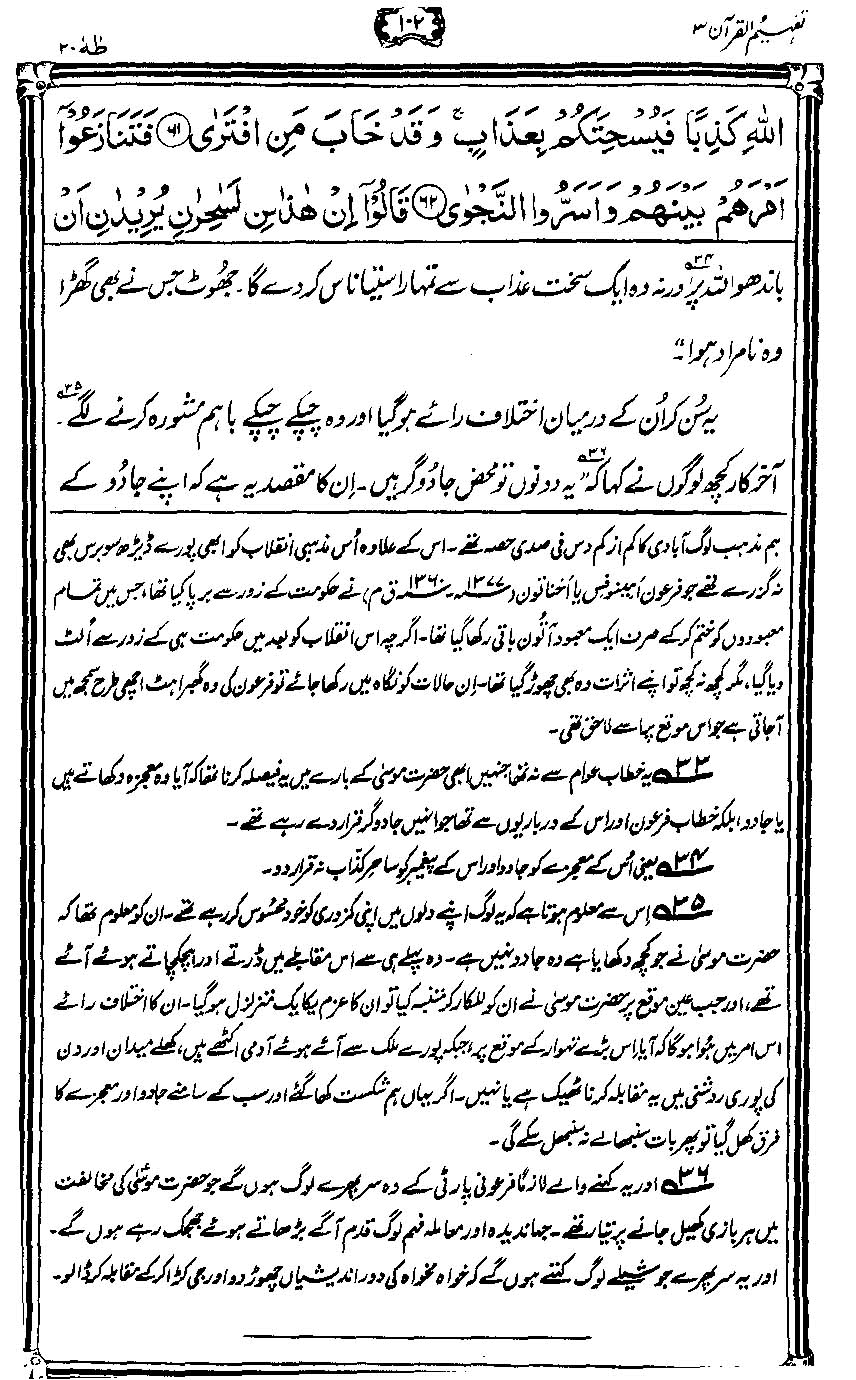 تفہیم القرآن ۳
۱۰۲
طٰہٰ ۲۰
اللّٰهِ كَذِبًا فَيُسْحِتَكُمْ بِعَذَابٍ ۚ وَقَدْ خَابَ مَنِ افْتَرٰى ﴿۶۱﴾ فَتَنَازَعُوْۤا
اَمْرَهُمْ بَيْنَهُمْ وَاَسَرُّوا النَّجْوٰى ﴿۶۲﴾ قَالُوْۤا اِنْ هٰذٰىنِ لَسٰحِرٰنِ يُرِيْدٰنِ اَنْ
باندھو اللہ پر۳۴، ورنہ وہ ایک سخت عذاب سے تمہارا ستیاناس کر دے گا۔ جھُوٹ جس نے بھی گھڑا
وہ نامراد ہوا“۔
یہ سُن کر اُن کے درمیان اختلاف رائے ہوگیا اور وہ چپکے چپکے باہم مشورہ کرنے لگے۳۵۔
آخر کار کچھ لوگوں نے کہا کہ۳۶ ”یہ دونوں تو محض جادُوگر ہیں۔ اِن کا مقصد یہ ہے کہ اپنے جادُو کے
ہم مذہب لوگ آبادی کا کم از کم دس فی صدی حصہ تھے۔ اس کے علاوہ اُس مذہبی انقلاب کو ابھی پورے ڈیڑھ سو برس بھی
نہ گزرے تھے جو فرعون اَمینوفِس یا اَخناتون (۱۳۷۷ء۔ ۱۳۶۰ ق م) نے حکومت کے زور سے برپا کیا تھا، جس میں تمام
معبودوں کو ختم کر کے صرف ایک معبود آتُون باقی رکھا گیا تھا۔ اگرچہ اس انقلاب کو بعد میں حکومت ہی کے زور سے اُلٹ
دیا گیا، مگر کچھ نہ کچھ تو اپنے اثرات وہ بھی چھوڑ گیا تھا۔ اِن حالات کو نگاہ میں رکھا جائے تو فرعون کی وہ گھبراہٹ اچھی طرح سمجھ میں
آجاتی ہے جو اس موقع پر اسے لاحق تھی۔
۳۳ یہ خطاب عوام سے نہ تھا جنہیں ابھی حضرت موسیٰ کے بارے میں یہ فیصلہ کرنا تھا کہ آیا وہ معجزہ دکھاتے ہیں
یا جادو، بلکہ خطاب فرعون اور اس کے درباریوں سے تھا جو انہیں جادوگر قرار دے رہے تھے۔
۳۴ یعنی اُس کے معجزے کو جادو اور اس کے پیغمبر کو ساحر کذّاب نہ قرار دو۔
۳۵ اِس سے معلوم ہوتا ہے کہ یہ لوگ اپنے دلوں میں اپنی کمزوری کو خود محسُوس کر رہے تھے۔ ان کو معلوم تھا کہ
حضرت موسیٰ نے جو کچھ دکھایا ہے وہ جادو نہیں ہے۔ وہ پہلے ہی سے اس مقابلے میں ڈرتے اور ہچکچاتے ہوئے آئے
تھے، اور جب عین موقع پر حضرت موسیٰ نے ان کو للکار کر متنبہ کیا تو ان کا عزم یکایک متزلزل ہوگیا۔ ان کا اختلاف رائے
اس امر میں ہُوا ہوگا کہ آیا اِس بڑے تہوار کے موقع پر، جبکہ پورے ملک سے آئے ہوئے آدمی اکٹھے ہیں، کھلے میدان اور دن
کی پوری روشنی میں یہ مقابلہ کرنا ٹھیک ہے یا نہیں۔ اگر یہاں ہم شکست کھا گئے اور سب کے سامنے جادو اور معجزے کا
فرق کھل گیا تو پھر بات سنبھالے نہ سنبھل سکے گی۔
۳۶ اور یہ کہنے والے لازمًا فرعونی پارٹی کے وہ سر پھرے لوگ ہوں گے جو حضرت موسیٰ کی مخالفت
میں ہر بازی کھیل جانے پر تیار تھے۔ جہاندیدہ اور معاملہ فہم لوگ قدم آگے بڑھاتے ہوئے جھجک رہے ہوں گے۔
اور یہ سر پھرے جوشیلے لوگ کہتے ہوں گے کہ خواہ مخواہ کی دور اندیشیاں چھوڑ دو اور جی کڑا کر کے مقابلہ کر ڈالو۔